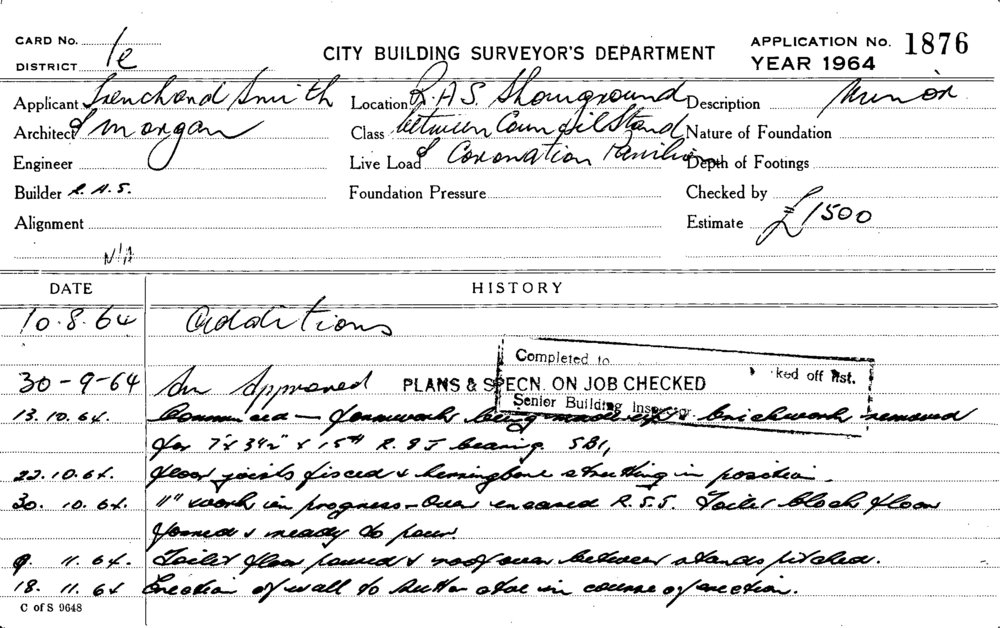 CARD No. 1e
DISTRICT
CITY BUILDING SURVEYOR'S DEPARTMENT
APPLICATION No. 1876
YEAR 1964
Applicant Trenchand Smith
Architect & Morgan
Engineer
Builder R.A.S.
Alignment
N/A
Location R.A.S. Showground
Class between Council Stand
Live Load & Coronation Pavilion
Foundation Pressure
Description Minor
Nature of Foundation
Depth of Footings
Checked by
Estimate £1500
DATE HISTORY
10.8.64 Additions
Completed to
ked off list.
Senior Building Inspector.
30-9-64 Approved PLANS & SPECN. ON JOB CHECKED
13.10.64. Commenced — formwork being made up brickwork removed
for 7" x 3½" x 15# R.S.J bearing. SB1,
22.10.64. floor joists fixed & herringbone strutting in position.
30.10.64. " work in progress - Over encased R.S.J. Toilet block floor
formed & ready to pour.
9.11.64. Toilet floor poured & roof over between stands pitched.
18.11.64 Erection of wall to in course of erection.
C of S 9648